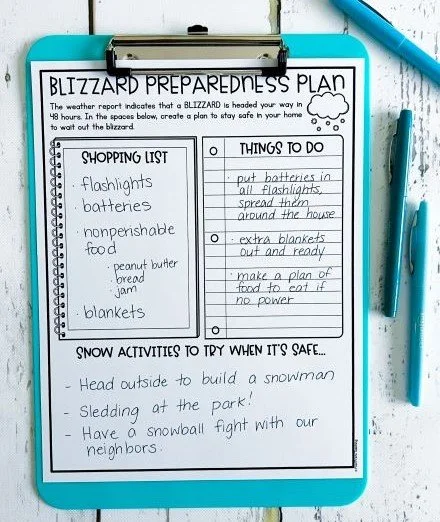 BLIZZARD PREPAREDNESS PLAN
The weather report indicates that a BLIZZARD is headed your way in
48 hours. In the spaces below, create a plan to stay safe in your home
to wait out the blizzard.
SHOPPING LIST
· flashlights
· batteries
· nonperishable
food
· peanut butter
· bread
· jam
· blankets
THINGS TO DO
· put batteries in
all flashlights,
spread them
around the house
· extra blankets
out and ready
· make a plan of
food to eat if
no power
SNOW ACTIVITIES TO TRY WHEN IT'S SAFE...
- Head outside to build a snowman
- Sledding at the park!
- Have a snowball fight with our
neighbors.